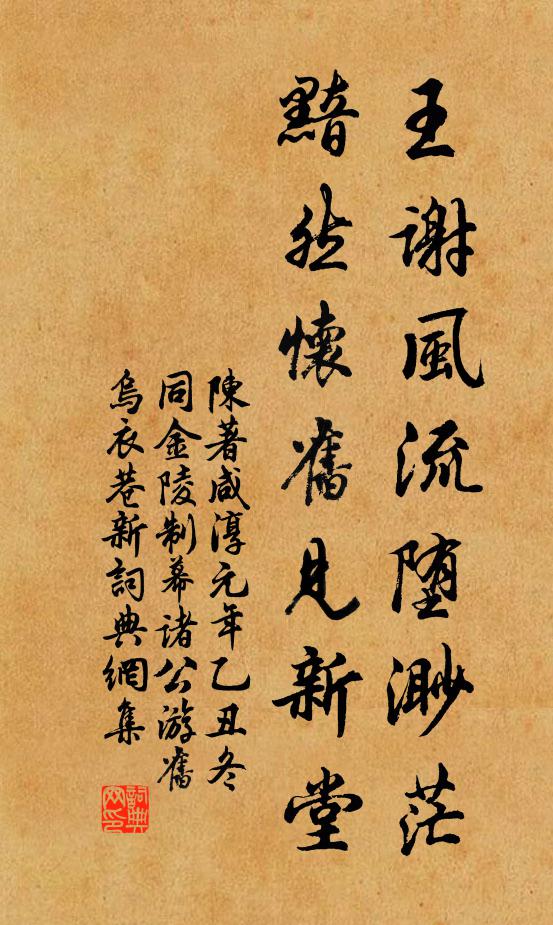 王謝風流堕渺茫
黯然懷舊見新堂
陳著咸淳元年乙丑冬
同金陵制幕諸公游舊
烏衣巷新詞典網集
詞典網印